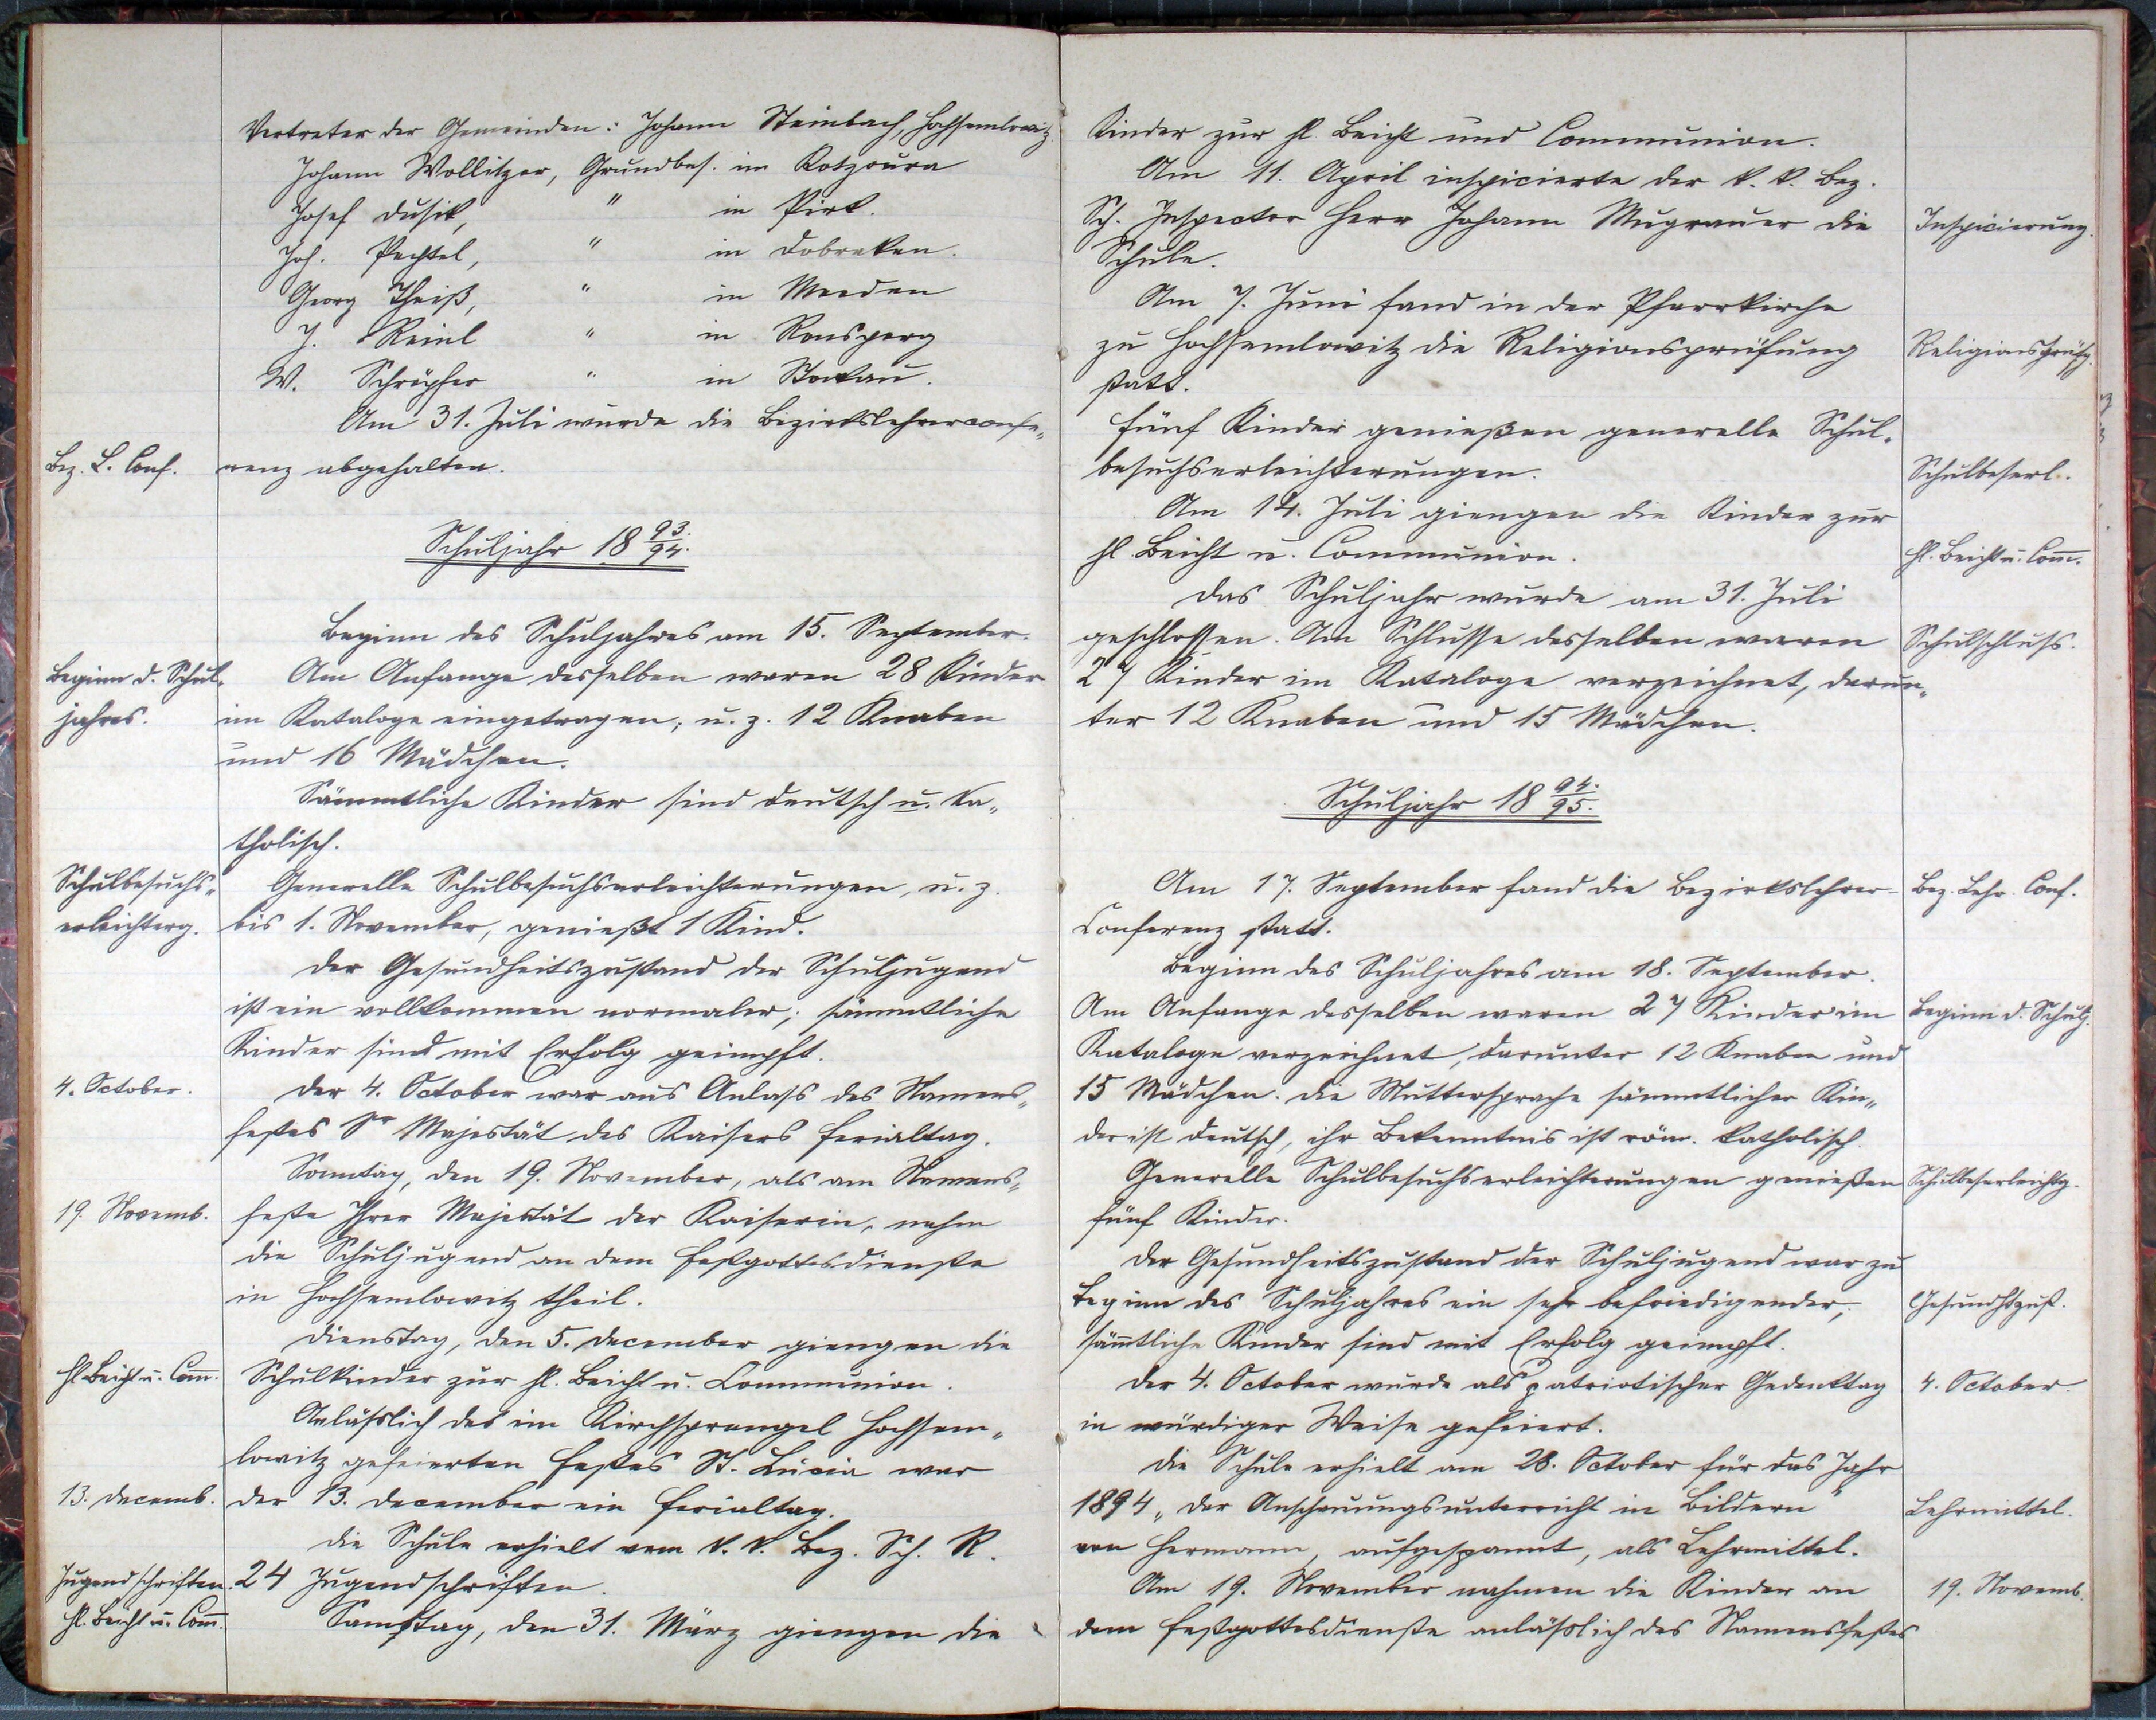 Vertreter der Gemeinden: Johann Steinbach, Hochsemlowitz
Johann Wollitzer, Grundbes. in Kotzoura
Josef Dusik, " in Pirk.
Joh. Pechtel, " in Dobraken.
Georg Theiß, " in Meeden
J. Reinl " in Ronsperg
W. Schröpfer " in Stockau.
Am 31. Juli wurde die Bezirkslehrerconfe„
Bez. L. Conf. renz abgehalten.
Schuljahr 18 93./94.
Beginn des Schuljahres am 15. September.
Beginn d. Schul„ Am Anfange desselben waren 28 Kinder
jahres. im Kataloge eingetragen, u. z. 12 Knaben
und 16 Mädchen.
Sämmtliche Kinder sind deutsch u. ka„
tholisch.
Schulbesuchs„ Generelle Schulbesuchserleichterungen, u. z.
erleichterg. bis 1. November, genießt 1 Kind.
Der Gesundheitszustand der Schuljugend
ist ein vollkommen normaler; sämmtliche
Kinder sind mit Erfolg geimpft.
4. October. Der 4. October war aus Anlass des Namens„
festes Sr Majestät des Kaisers Ferialtag.
Sonntag, den 19. November, als am Namens„
19. Novemb. feste Ihrer Majestät der Kaiserin, nahm
die Schuljugend an dem Festgottesdienste
in Hochsemlowitz theil.
Dienstag, den 5. December giengen die
hl. Beicht u. Com. Schulkinder zur hl. Beicht u. Communion.
Anläßlich des im Kirchsprengel Hochsem„
lowitz gefeierten Festes St. Lucia war
13. Decemb. der 13. December ein Ferialtag.
Die Schule erhielt vom k. k. Bez. Sch. R.
Jugendschriften. 24 Jugendschriften.
hl. Beicht u. Com. Samstag, den 31. März giengen die
Kinder zur hl. Beicht und Communion.
Am 11. April inspicierte der k. k. Bez.
Sch. Inspector Herr Johann Mugrauer die Inspicierung.
Schule.
Am 7. Juni fand in der Pfarrkirche
zu Hochsemlowitz die Religionsprüfung Religionsprüfg.
statt.
Fünf Kinder genießen generelle Schul„
besuchserleichterungen. Schulbeserl.
Am 14. Juli giengen die Kinder zur
hl. Beicht u. Communion. hl. Beicht u. Com.
Das Schuljahr wurde am 31. Juli
geschlossen. Am Schlusse desselben waren Schulschluss.
27 Kinder im Kataloge verzeichnet, darun„
ter 12 Knaben und 15 Mädchen.
Schuljahr 18 94./95.
Am 17. September fand die Bezirkslehrer- Bez. Lehr. Conf.
Conferenz statt.
Beginn des Schuljahres am 18. September.
Am Anfange desselben waren 27 Kinder im Beginn d. Schulj.
Kataloge verzeichnet, darunter 12 Knaben und
15 Mädchen. Die Muttersprache sämmtlicher Kin„
der ist deutsch, ihr Bekenntnis ist röm. katholisch.
Generelle Schulbesuchserleichterungen genießen Schulbeserleichtg.
fünf Kinder.
Der Gesundheitszustand der Schuljugend war zu
Beginn des Schuljahres ein sehr befriedigender, Gesundhtzust.
sämtliche Kinder sind mit Erfolg geimpft.
Der 4. October wurde als patriotischer Gedenktag 4. October.
in würdiger Weise gefeiert.
Die Schule erhielt am 28. October für das Jahr
1894 „Der Anschauungsunterricht in Bildern" Lehrmittel.
von Hermann, aufgespannt, als Lehrmittel.
Am 19. November nahmen die Kinder an 19. Novemb.
dem Festgottesdienste anläßlich des Namensfestes